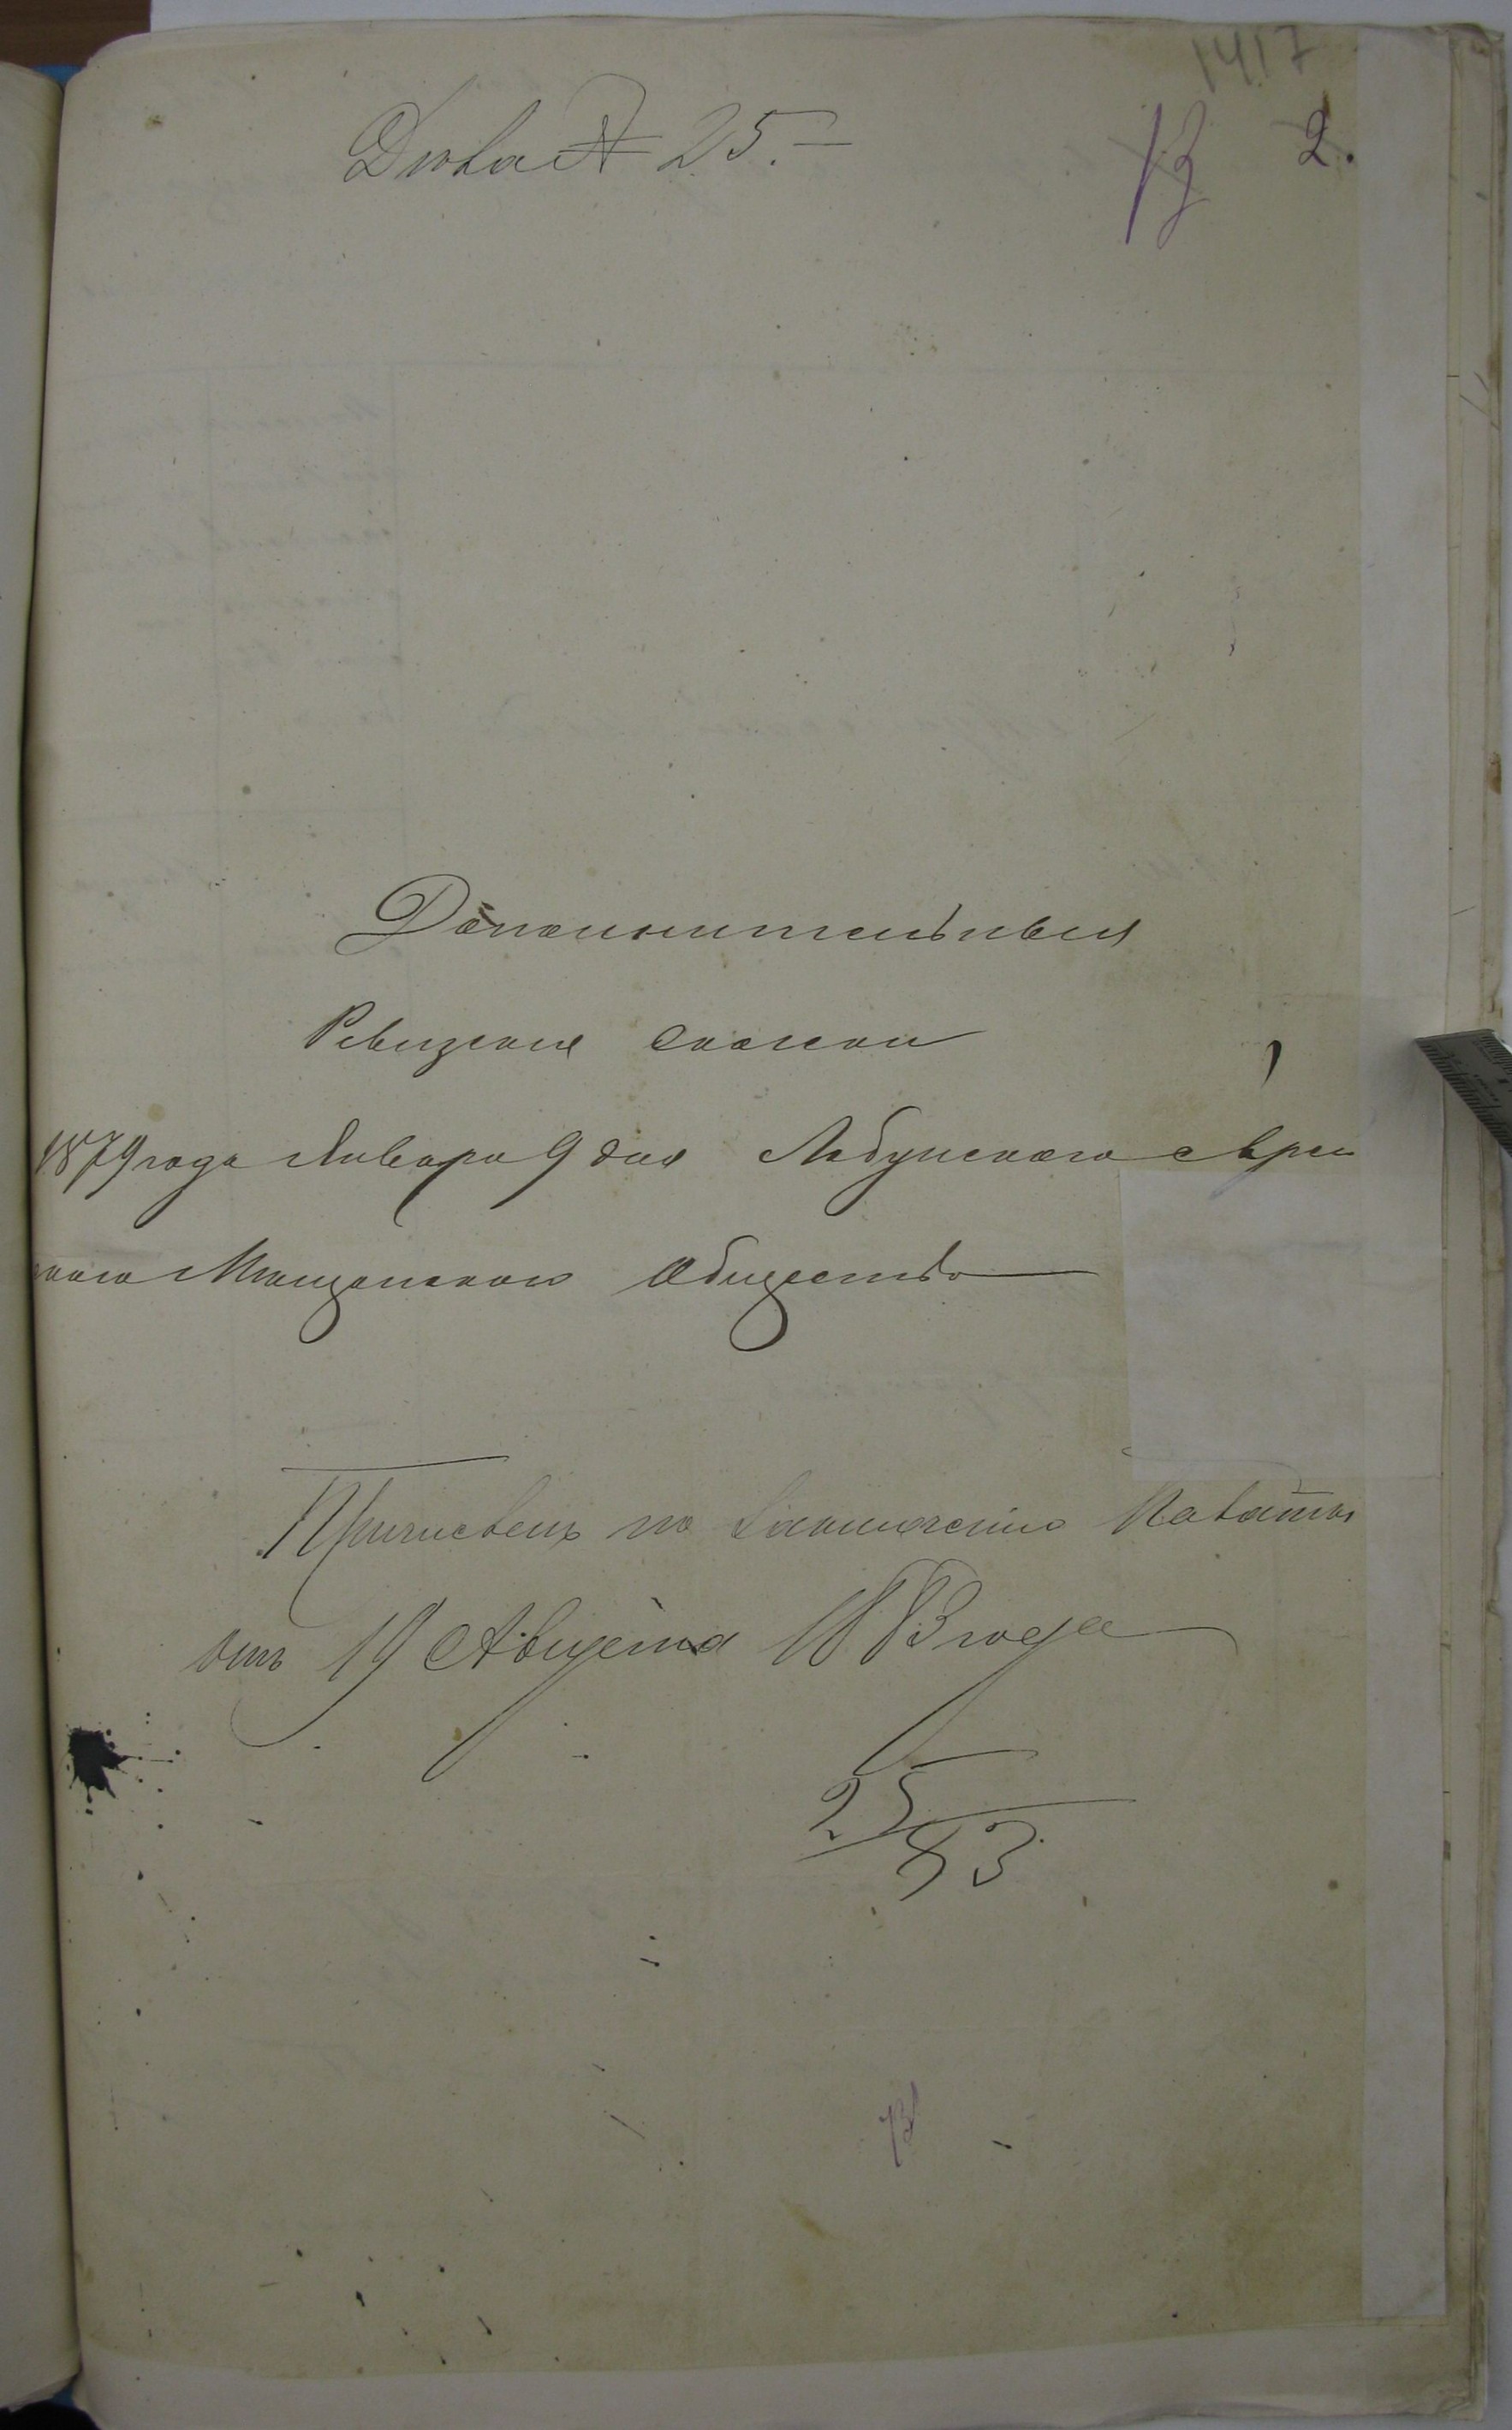 1417
Дѣла № 25.—
13 2.
Дополнительныя
Ревизскія сказки
1879 года Января 9 дня Лабунскаго еврей
скаго Мѣщанскаго Общества
по заключенію Палаты
отъ 19 Августа 1883 года
25/83
13